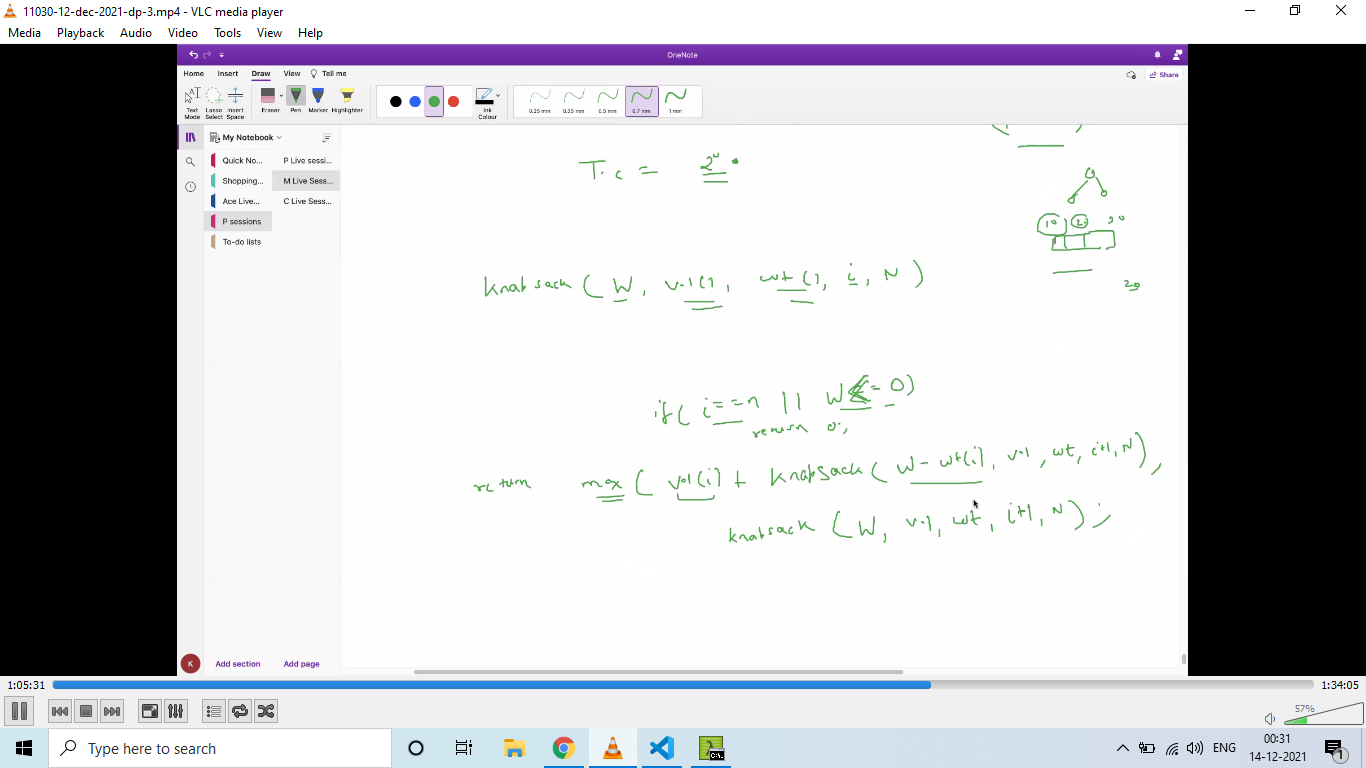 11030-12-dec-2021-dp-3.mp4 - VLC media player
Media Playback Audio Video Tools View Help
OneNote
Home Insert Draw View Tell me
Share
Text Mode Lasso Select Insert Space Eraser Pen Marker Highlighter Ink Colour 0.25 mm 0.25 mm 0.5 mm 0.7 mm 1 mm
My Notebook
Quick No... P Live sessi...
Shopping... M Live Sess...
Ace Live... C Live Sess...
P sessions
To-do lists
T.C = 2^n
10 20 30
20
knapsack ( W, val[], wt[], i, N )
if( i==n || W<=0)
return 0;
return max( val[i] + knapsack( W-wt[i], val, wt, i+1, N),
knapsack (W, val, wt, i+1, N) ;
K Add section Add page
1:05:31 1:34:05
57%
Type here to search
C:\.
ENG
00:31
14-12-2021
1